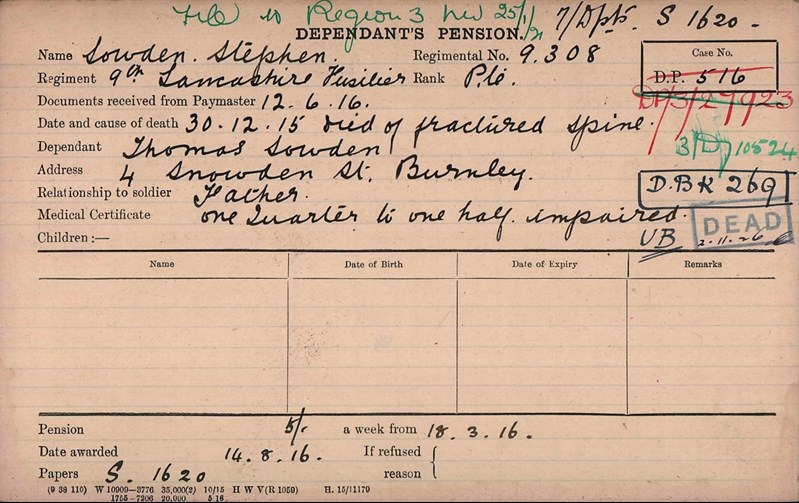 File to Region 3 25/1/21 7/Dpts. S 1620 -
DEPENDANT'S PENSION.
Name Sowden. Stephen. Regimental No. 9.308
Case No.
Regiment 9th Lancashire Fusilier Rank Pte.
D.P. 516
Documents received from Paymaster 12.6.16.
DP/3/27923
Date and cause of death 30.12.15 Died of fractured spine.
Dependant Thomas Sowden
10524
Address 4 Snowden St. Burnley.
D.B.K 269
Relationship to soldier Father.
Medical Certificate one Quarter to one half impaired.
DEAD
Children :—
UB 2.11.26
Name Date of Birth Date of Expiry Remarks
Pension 5/- a week from 18.3.16.
Date awarded 14.8.16. If refused
Papers S. 1620 reason
(9 38 110) W 10909—3776 35,000(2) 10/15 H W V(R 1059) H. 15/11179
1755—7206 20,000 5 16